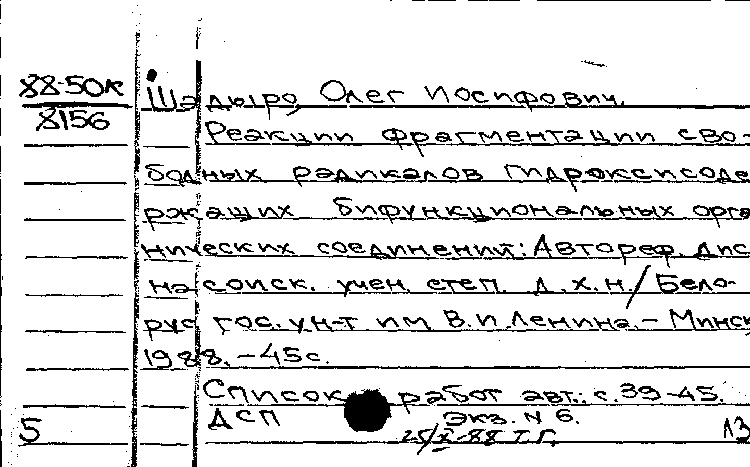 88-50к Шадыро, Олег Иосифович.
8156
Реакции фрагментации сво-
бодных радикалов гидроксисоде
ржащих бифункциональных орга
нических соединений: Автореф. дис
на соиск. учен. степ. д.х.н./Бело-
рус гос. ун-т им В.И.Ленина.-Минск
1988.-45с.
Список работ авт.: с.39-45.
ДСП Экз. N 6.
5 25/X-88 Т.Г.